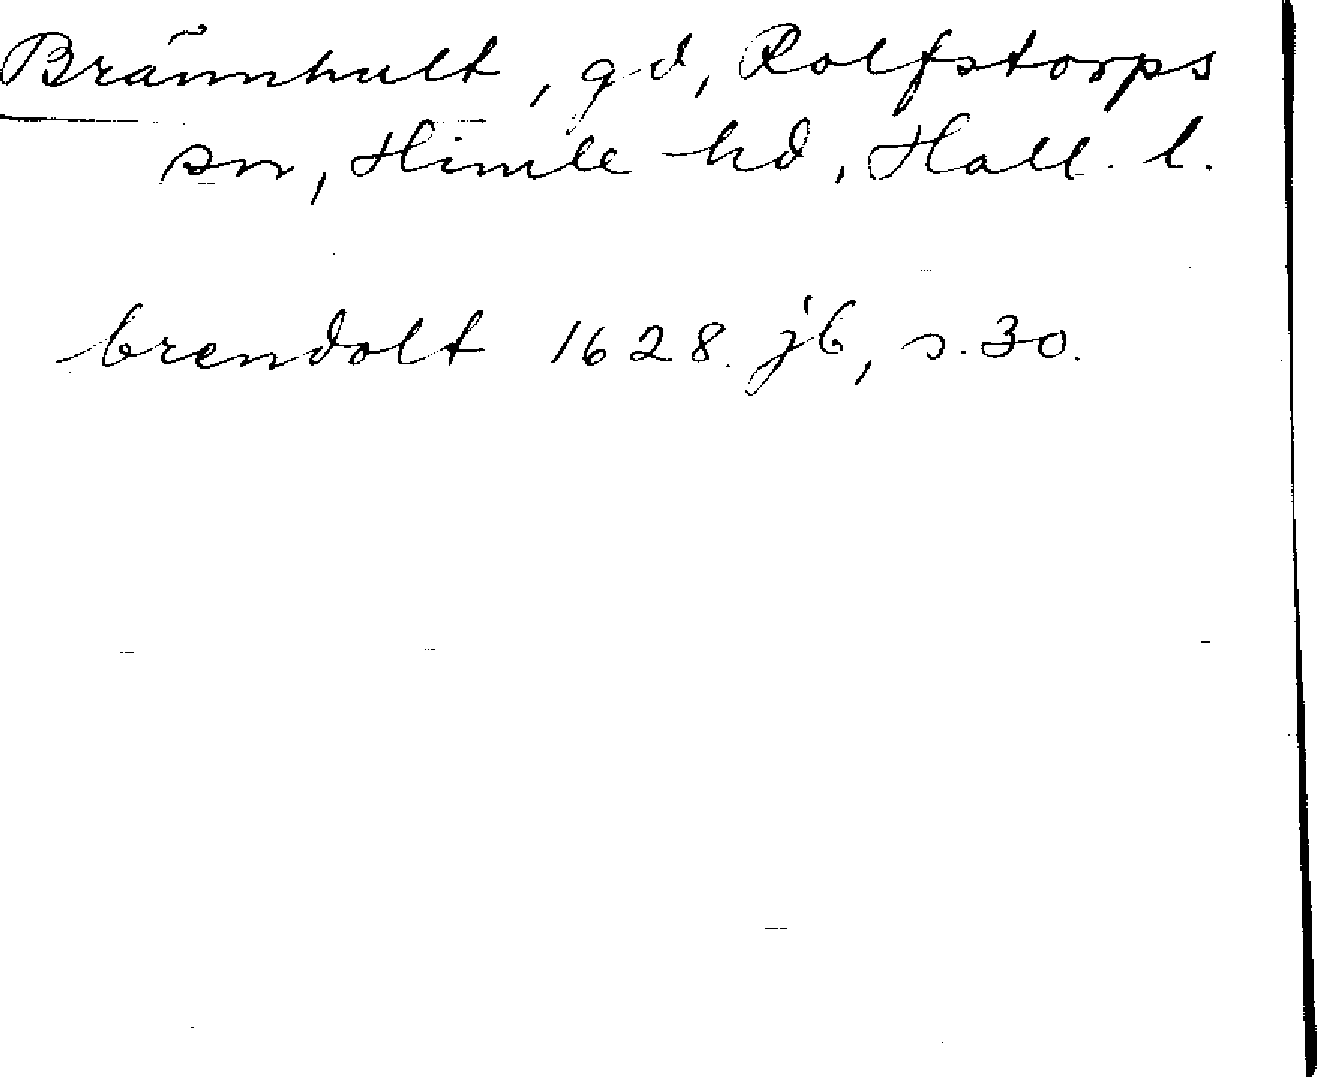 Brännhult, gd, Rolfstorps
sn, Himle hd, Hall. l.
brendolt 1628. jb, s. 30.